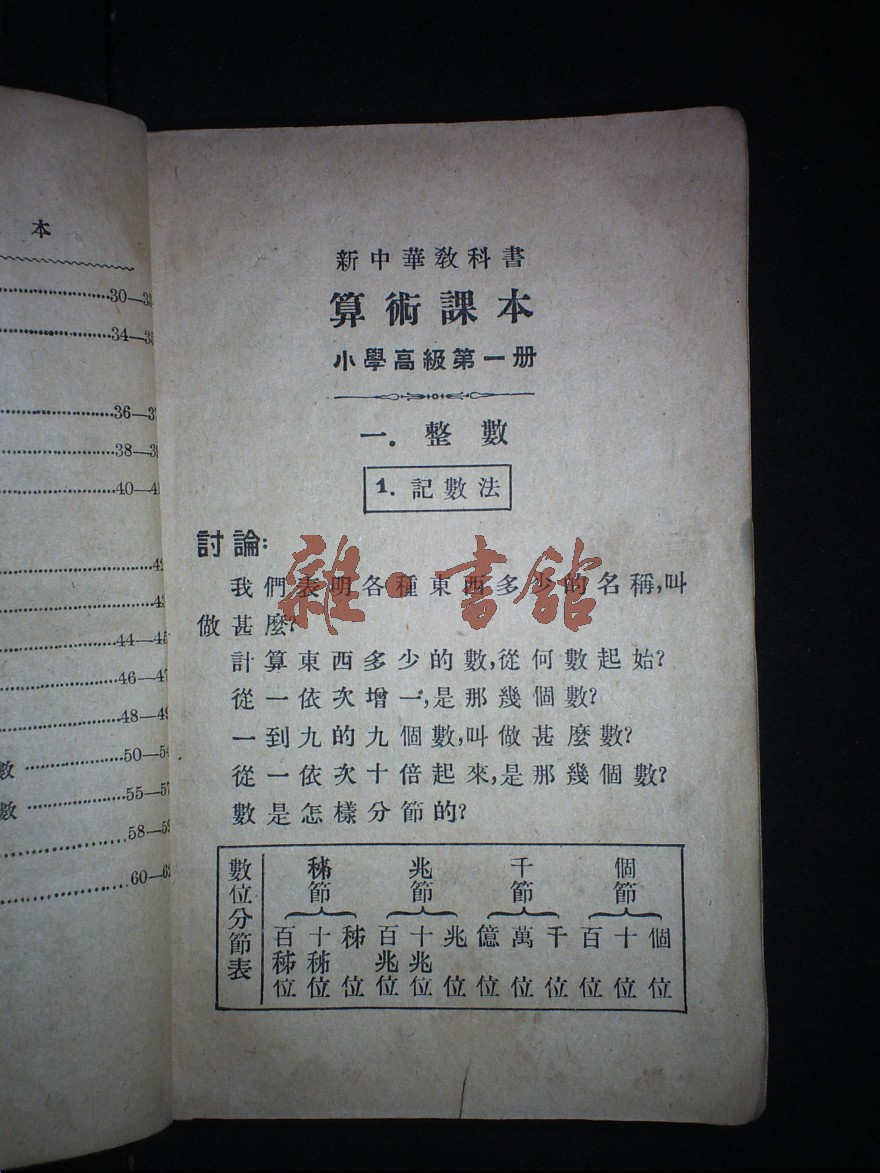 本
30—3
34—3
36—3
38—3
40—4
42
43
44—45
46—47
48—49
數 50—54
數 55—57
58—59
60—62
新中華教科書
算術課本
小學高級第一册
一. 整數
1. 記數法
討論:
我們表明各種東西多少的名稱,叫
做甚麼?
計算東西多少的數,從何數起始?
從一依次增一,是那幾個數?
一到九的九個數,叫做甚麼數?
從一依次十倍起來,是那幾個數?
數是怎樣分節的?
數位分節表
秭節 兆節 千節 個節
百秭位 十秭位 秭位 百兆位 十兆位 兆位 億位 萬位 千位 百位 十位 個位
雜·書館